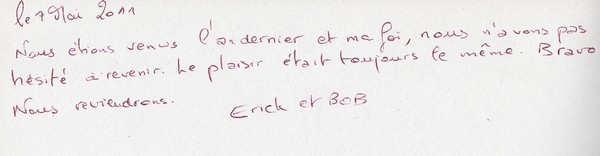 le 7 Mai 2011
Nous étions venus l'an dernier et ma foi, nous n'avons pas
hésité à revenir. Le plaisir était toujours le même. Bravo
Nous reviendrons.
Erick et BOB